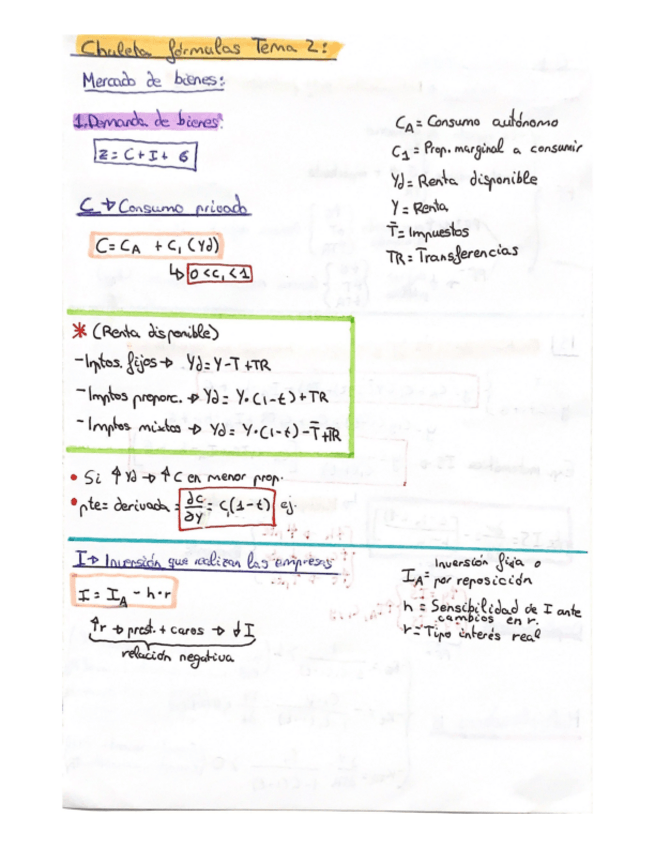 Chuleta fórmulas Tema 2:
Mercado de bienes:
1. Demanda de bienes:
Z = C + I + G
C → Consumo privado
C = CA + C1 (Yd)
↳ 0 < C1 < 1
CA = Consumo autónomo
C1 = Prop. marginal a consumir
Yd = Renta disponible
Y = Renta
T̄ = Impuestos
TR = Transferencias
* (Renta disponible)
- Imptos. fijos → Yd = Y - T + TR
- Imptos proporc. → Yd = Y · (1-t) + TR
- Imptos mixtos → Yd = Y · (1-t) - T̄ + TR
• Si ↑ Yd → ↑ C en menor prop.
• pte = derivada = ∂C/∂Y = C1(1-t) ej.
I → Inversión que realizan las empresas
I = IA - h·r
↑r → prest. + caros → ↓ I
relación negativa
IA = Inversión fija o por reposición
h = Sensibilidad de I ante cambios en r.
r = Tipo interés real